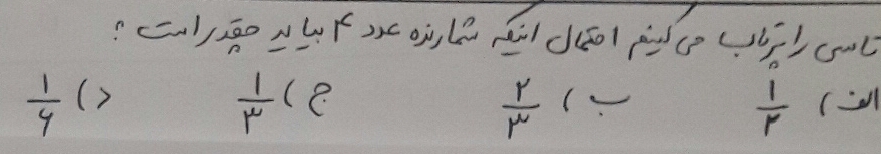 تاسی را پرتاب می کنیم احتمال اینکه شمارنده عدد ۴ بیاید چقدر است ؟
الف) ۱/۲ ب) ۲/۳ ج) ۱/۳ د) ۱/۶